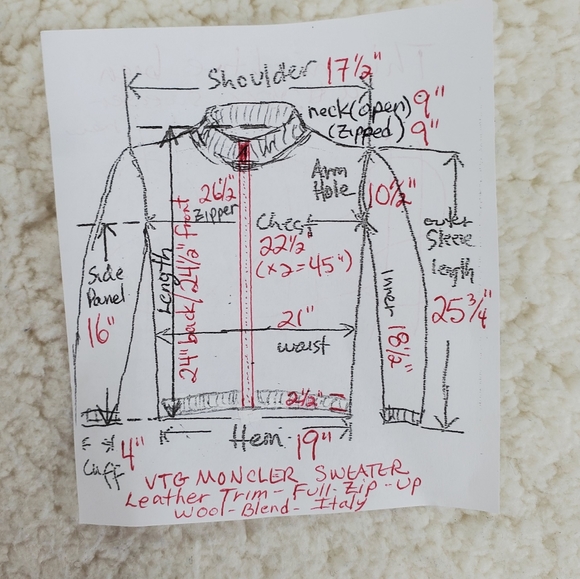 Shoulder 17½"
neck(open) 9"
(Zipped) 9"
Arm
Hole
10½"
26½"
Zipper
Chest
22½"
(x2=45")
outer
Sleeve
length
25¾"
Side
Panel
16"
Length
24" back/24½" front
Inner 18½"
21"
waist
2½"
Hem 19"
Cuff 4"
VTG MONCLER SWEATER
Leather Trim - Full-Zip-Up
Wool-Blend- Italy